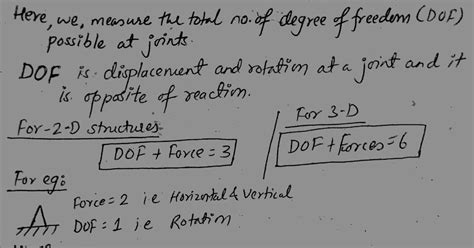 Here, we, measure the total no. of degree of freedom (DOF)
possible at joints.
DOF is displacement and rotation at a joint and it
is opposite of reaction.
For-2-D structures
DOF + Force = 3
For 3-D
DOF + Forces = 6
For eg:
Force = 2 i e Horizontal & Vertical
DOF = 1 i e Rotation